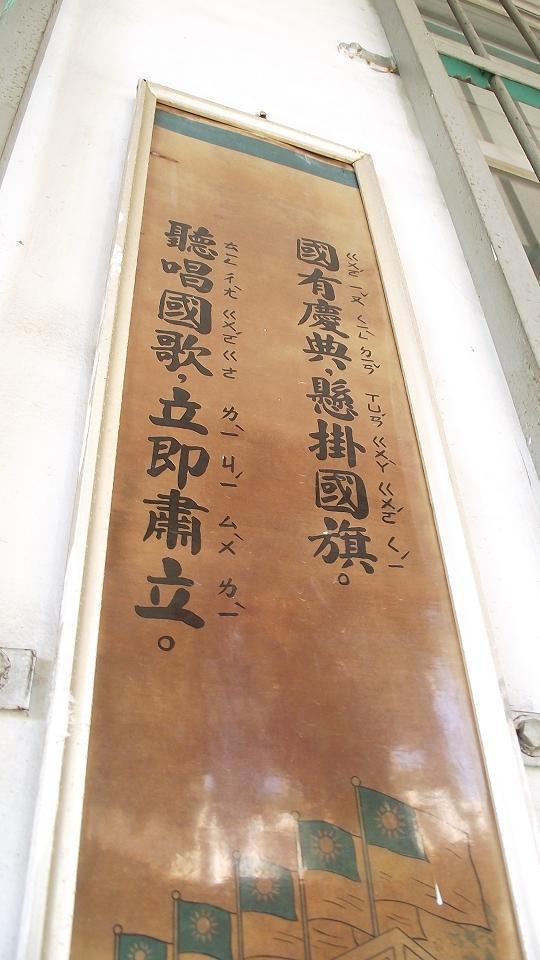 國有慶典，懸掛國旗。
ㄍㄨㄛˊ ㄧㄡˇ ㄑㄧㄥˋ ㄉㄧㄢˇ ㄒㄩㄢˊ ㄍㄨㄚˋ ㄍㄨㄛˊ ㄑㄧˊ
聽唱國歌，立即肅立。
ㄊㄧㄥ ㄔㄤˋ ㄍㄨㄛˊ ㄍㄜ ㄌㄧˋ ㄐㄧˊ ㄙㄨˋ ㄌㄧˋ